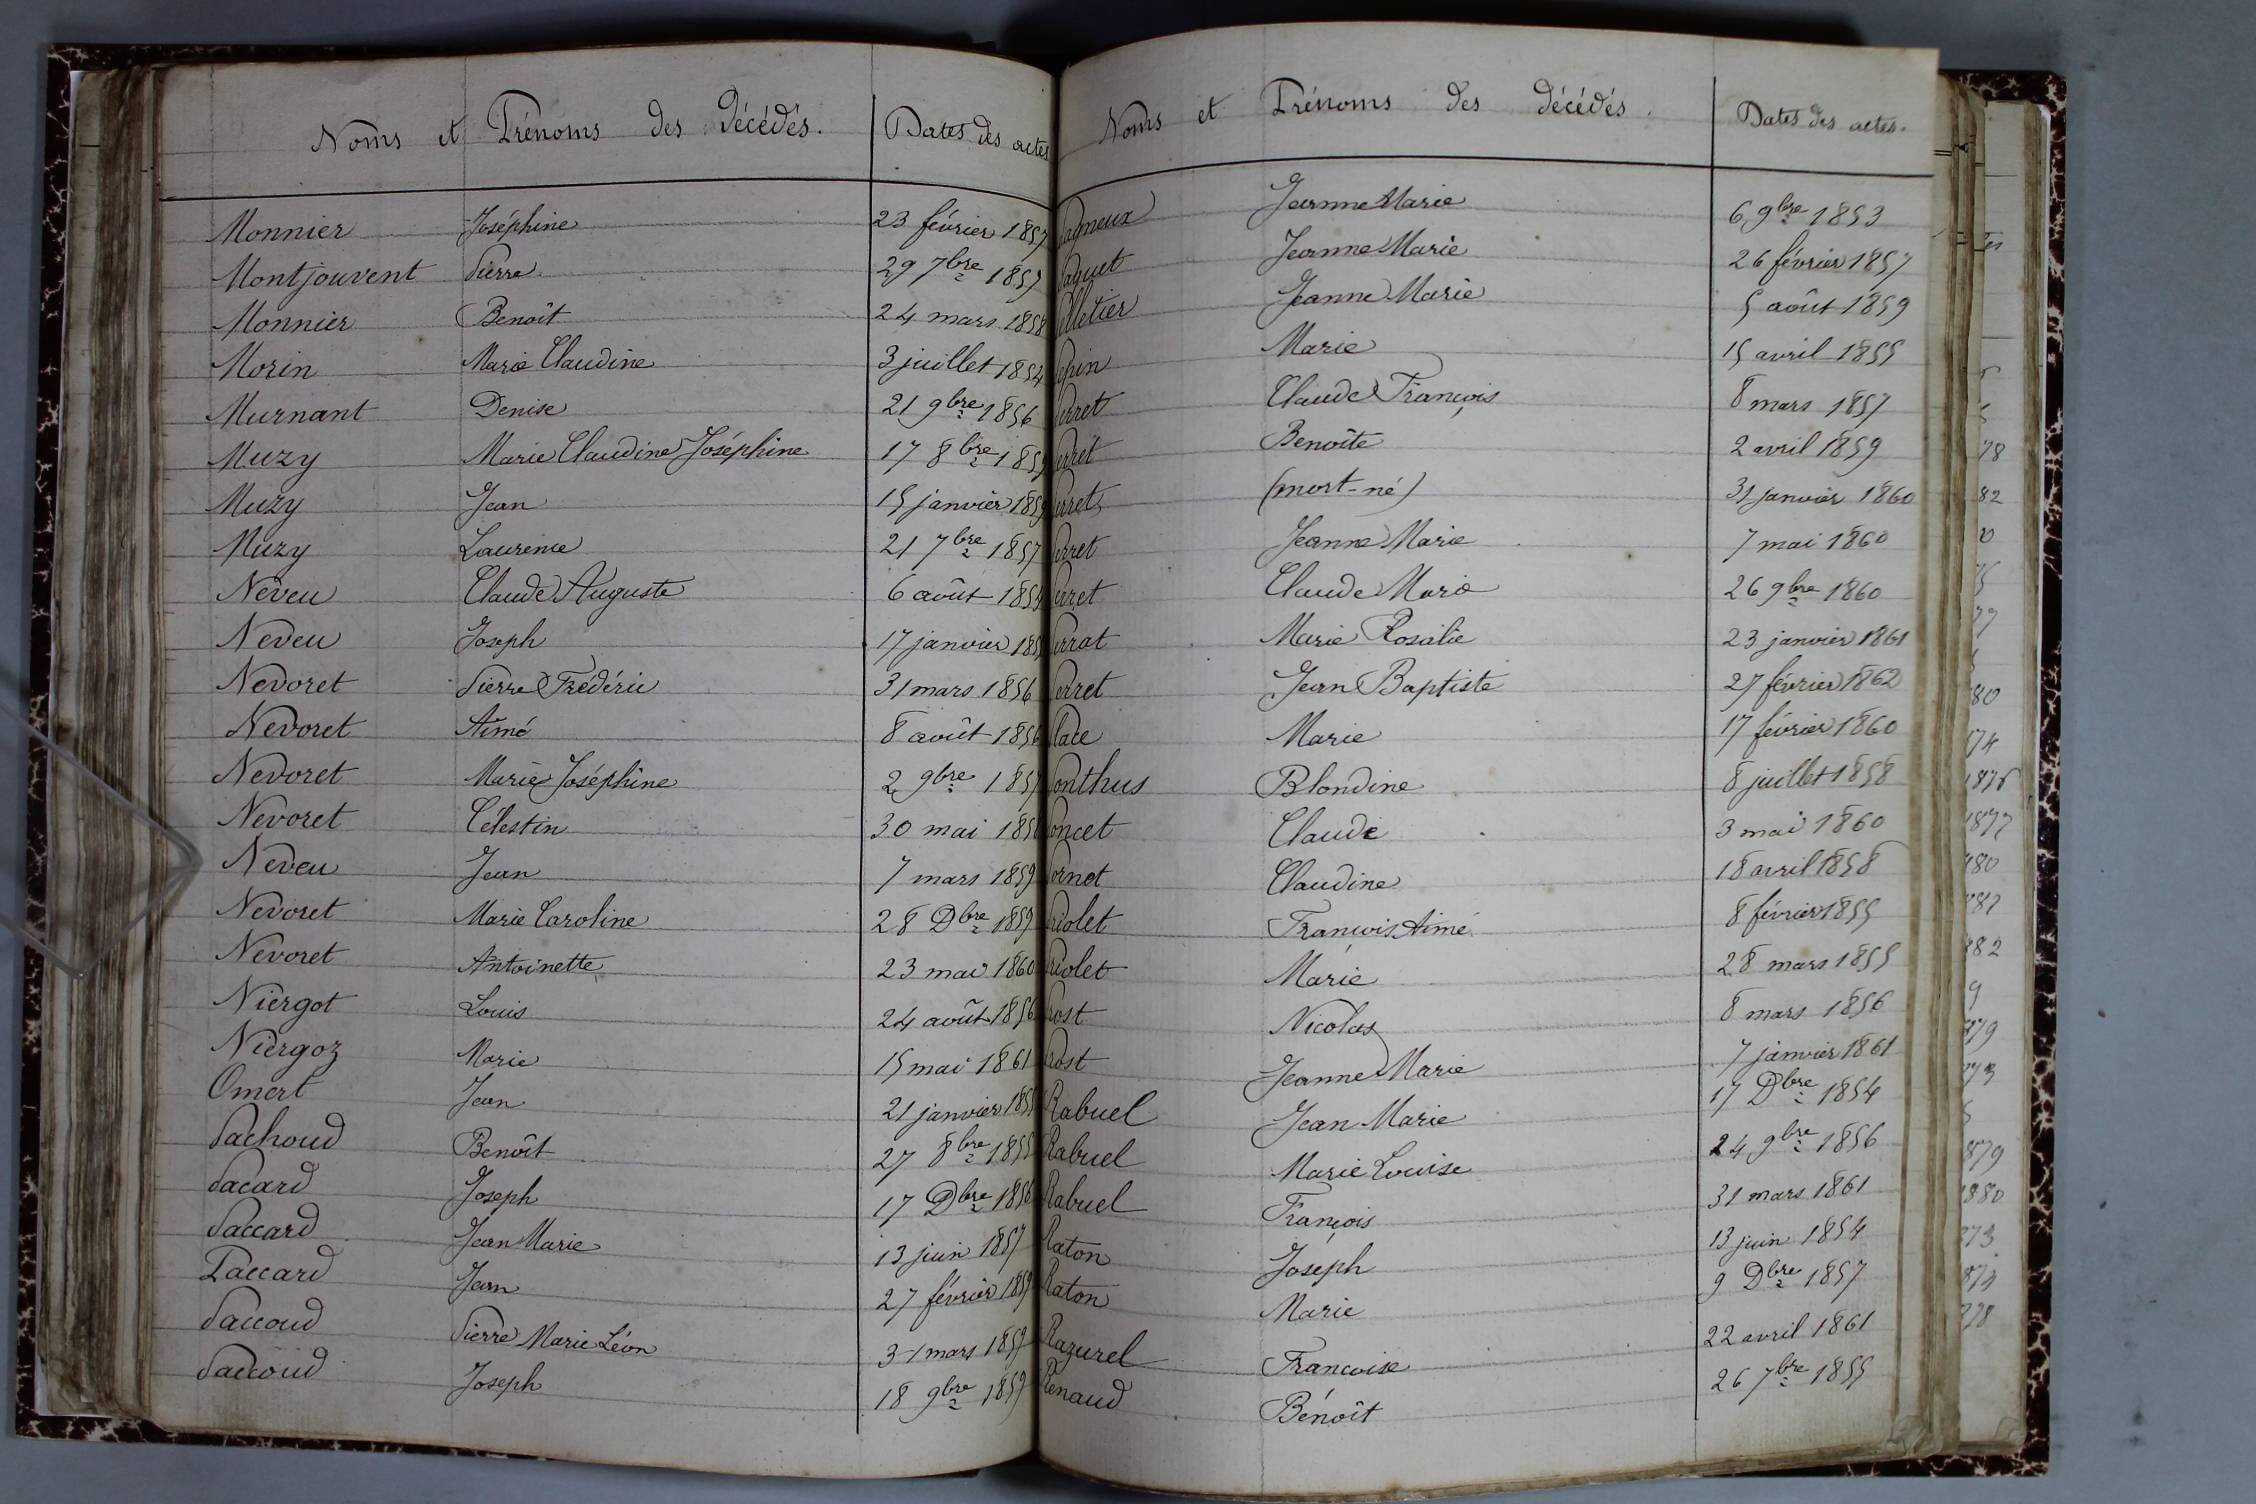 Noms et Prénoms des Décédés. Dates des actes
Monnier Joséphine 23 février 1857
Montjouvent Pierre 29 7bre 1857
Monnier Benoît 24 mars 1858
Morin Marie Claudine 3 juillet 1854
Murnant Denise 21 9bre 1856
Muzy Marie Claudine Joséphine 17 8bre 1859
Muzy Jean 15 janvier 1859
Muzy Laurence 21 7bre 1857
Neveu Claude Auguste 6 août 1854
Neveu Joseph 17 janvier
Nevoret Pierre Frédéric 31 mars 1856
Nevoret Aimé 8 août 1856
Nevoret Marie Joséphine 2 9bre 1857
Nevoret Célestin 30 mai
Neveu Jean 7 mars 1859
Nevoret Marie Caroline 28 Dbre 1859
Nevoret Antoinette 23 mai 1860
Niergot Louis 24 août 1856
Niergoz Marie 15 mai 1861
Omert Jean 21 janvier
Pachoud Benoît 27 8bre 1855
Pacard Joseph 17 Dbre 1856
Paccard Jean Marie 13 juin 1857
Paccard Jean 27 février 1859
Paccoud Pierre Marie Léon 31 mars 1859
Paccoud Joseph 18 9bre 1859
Noms et Prénoms des décédés. Dates des actes.
agneux Jeanne Marie 6 9bre 1853
aquet Jeanne Marie 26 février 1857
elletier Jeanne Marie 5 août 1859
epin Marie 15 avril 1855
erret Claude François 8 mars 1857
erret Benoîte 2 avril 1859
erret (mort-né) 31 janvier 1860
erret Jeanne Marie 7 mai 1860
erret Claude Marie 26 9bre 1860
errat Marie Rosalie 23 janvier 1861
erret Jean Baptiste 27 février 1862
lace Marie 17 février 1860
onthus Blondine 8 juillet 1858
oncet Claude 3 mai 1860
ornet Claudine 18 avril 1858
riolet François Aimé 8 février 1855
riolet Marie 28 mars 1855
rost Nicolas 8 mars 1856
rost Jeanne Marie 7 janvier 1861
Rabuel Jean Marie 17 Dbre 1854
Rabuel Marie Louise 24 9bre 1856
Rabuel François 31 mars 1861
Raton Joseph 13 juin 1854
Raton Marie 9 Dbre 1857
Razurel Francoise 22 avril 1861
Renaud Bénoît 26 7bre 1855